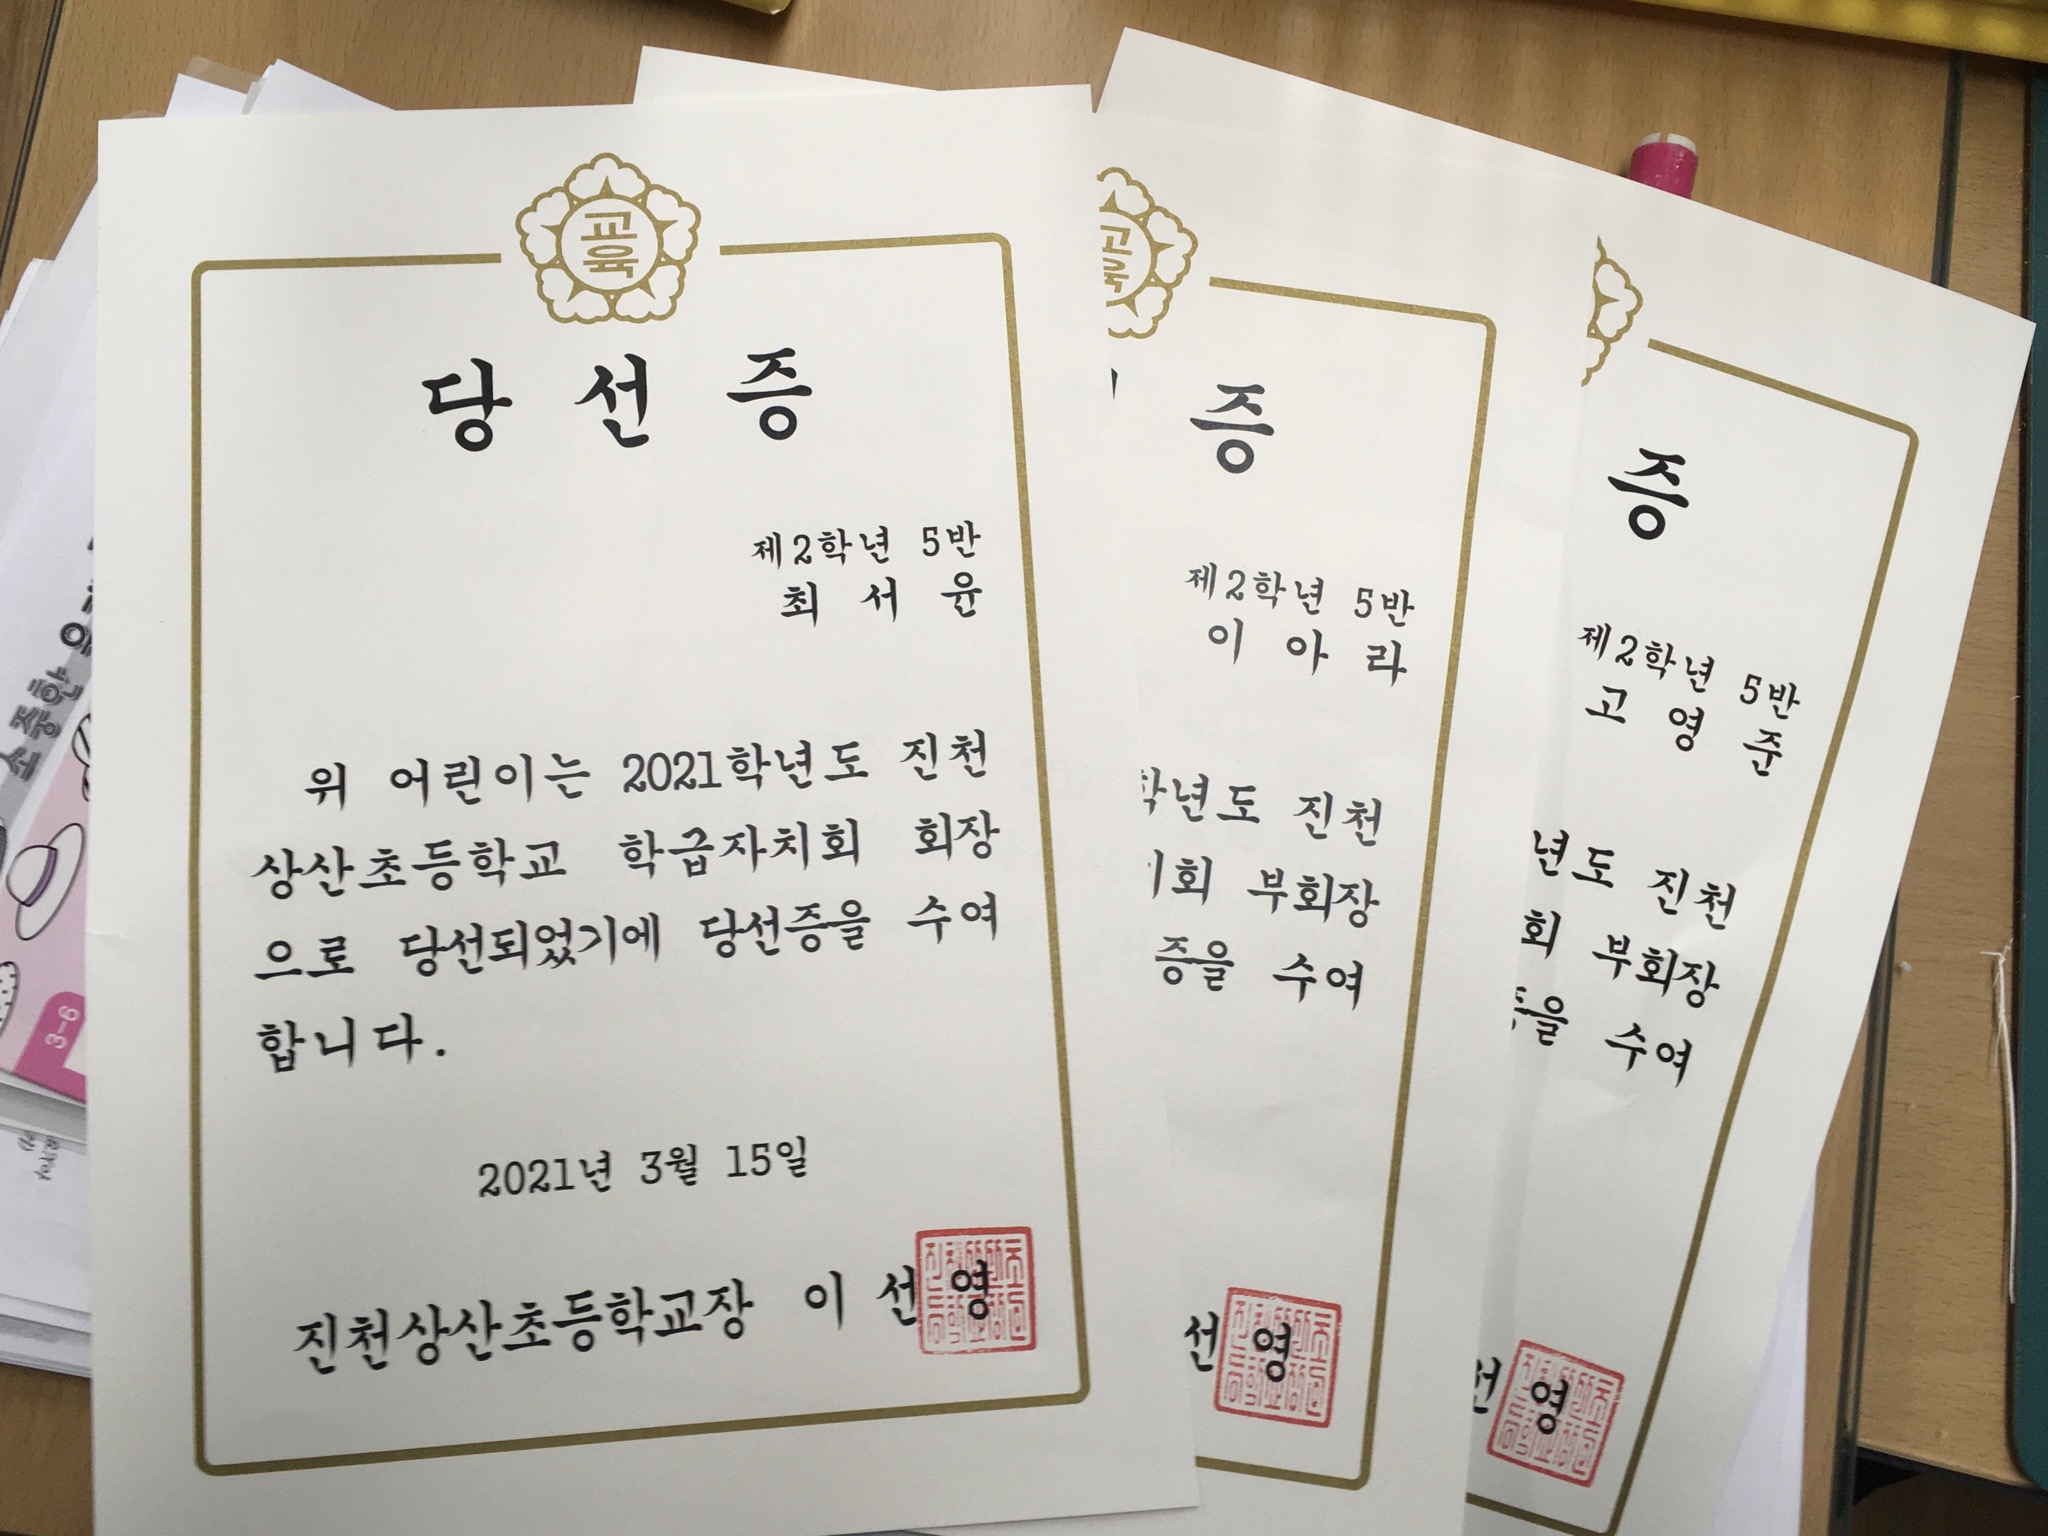 교육
당 선 증
제2학년 5반
최 서 윤
위 어린이는 2021학년도 진천
상산초등학교 학급자치회 회장
으로 당선되었기에 당선증을 수여
합니다.
2021년 3월 15일
진천상산초등학교장 이 선 영
교육
증
제2학년 5반
이 아 라
학년도 진천
회 부회장
증을 수여
선 영
증
제2학년 5반
고 영 준
년도 진천
회 부회장
을 수여
선 영
소중한
3-6